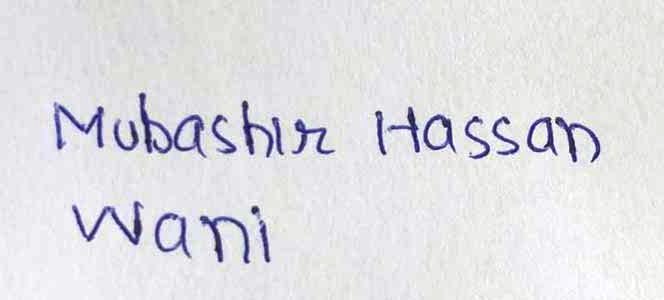 Mubashir Hassan
Wani